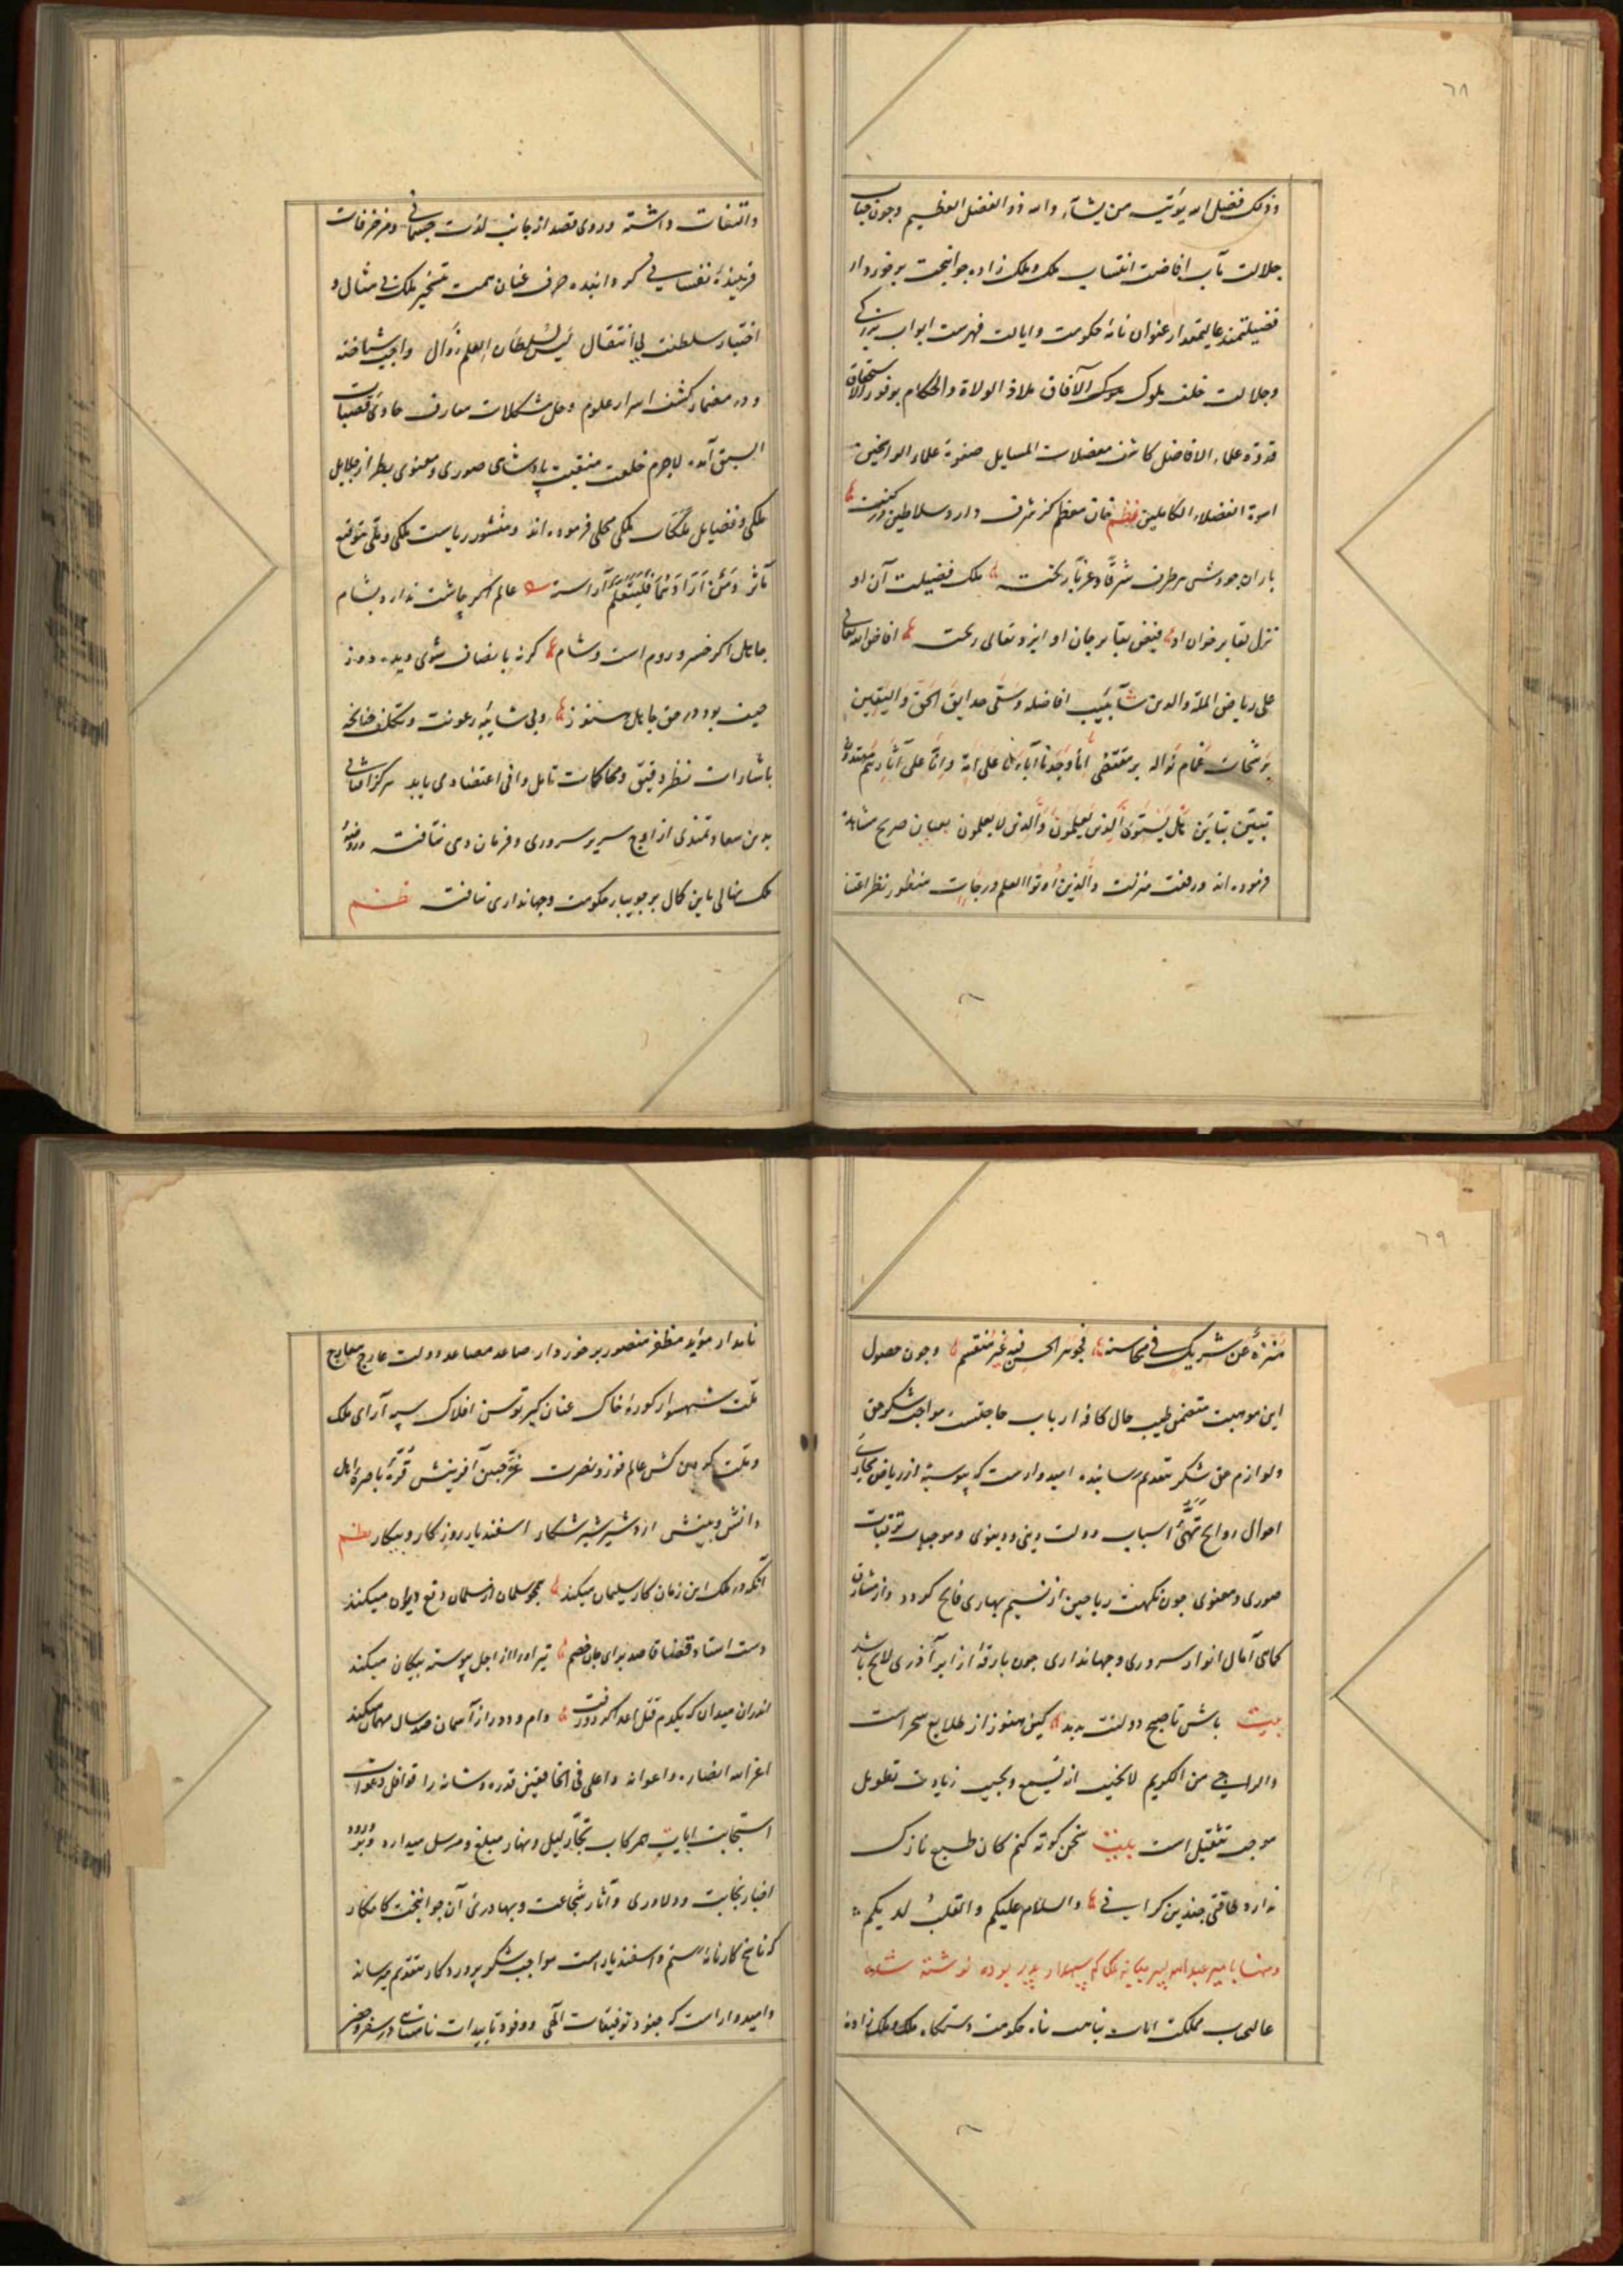 ٦٨
وذلک فضل الله یؤتیه من یشآء والله ذو الفضل العظیم وچون جناب
جلالت مآب افاضت انتساب ملک وملک زاده جوانبخت برخوردار
فضیلتمند عالیمقدار عنوان نامهٔ حکومت وایالت فهرست ابواب بزرگی
وجلالت خلف ملوک ملوک الآفاق ملاذ الولاة والحکام بوفور الاستحقاق
قدوة علماء الافاضل کاشف معضلات المسایل صفوة علماء الراسخین
اسوة الفضلاء الکاملین نظم خان معظم کز شرف دارد سلاطین در کنف
باران جودش هر طرف شرقاً وغرباً ریخت ملک فضیلت آن او
نزل بقا بر خوان او فیض بقا بر جان او ایزد تعالی ریخت افاض الله تعالی
علی ریاض الملة والدین شآبیب افاضله وسقی حدایق الحق والیقین
برشحات غمام نواله بر مقتضی إنا وجدنا آباءنا علی امة وإنا علی آثارهم مقتدون
تبیّن تباین هل یستوی الذین یعلمون والذین لا یعلمون بعیان صریح مشاهده
فرموده اند ورفعت منزلت والذین اوتوا العلم درجات منظور نظر اعتنا
والتفات داشته وروی قصد از جانب لذت جسمانی ومزخرفات
فریبندهٔ نفسانی گردانیده صرف عنان همت تسخیر ملک بی مثال و
اختیار سلطنت بی انتقال لیس لسلطان العلم زوال واجب شناخته
ودر مضمار کشف اسرار علوم وحل مشکلات معارف حاوی قصبات
السبق آمده لاجرم خلعت منقبت پادشاهی صوری ومعنوی بطراز جلایل
ملکی وفضایل ملکات ملکی محلی فرموده اند ومنشور ریاست ملکی وملی بتوقیع
مآثر ومن أراد فلیتعلم آراسته عالم اگر چاشت ندارد بشام
جاهل اگر خسرو روم است وشام گر نه بانصاف شوی دیده دوز
حیف بود در حق جاهل هنوز وبی شایبه رعونت وتکلف چنانچه
باشارات نظر دقیق ومحاکمات تامل وافی اعتضاد می یابد هرگز آفتابی
بدین سعادتمندی از اوج سریر سروری وفرمان دهی نتافت ودر روضهٔ
ملک نهالی باین کمال بر جویبار حکومت وجهانداری نیافت نظم
٦٩
منزه عن شریک فی محاسنه فجوهر الحسن فیه غیر منقسم وچون حصول
این موهبت متضمن طیب حال کافه ارباب حاجتست مواجب شکر حق
ولوازم حق شکر بتقدیم رسانیده امیدوارست که پیوسته از ریاض مجاری
احوال روایح تهیّٔ اسباب دولت دینی ودنیوی وموجبات ترقیات
صوری ومعنوی چون نکهت ریاحین از نسیم بهاری فایح گردد واز مشارق
آمال انوار سروری وجهانداری چون بارقهٔ از ابر آذری لایح باشد
بیت باش تا صبح دولتت بدمد کین هنوز از طلایع سحر است
والراجی من الکریم لا یخیب انه یسمع ویجیب زیادت تطویل
موجب تثقیل است بیت سخن کوته کنم کان طبع نازک
ندارد طاقتی چندین گرانی والسلام علیکم والقلب لدیکم
عالیجناب مملکت ایاب نباهت پناه حکومت دستگاه ملک وملک زاده
نامدار مؤید مظفر منصور برخوردار صاعد مصاعد دولت عارج معارج
ملت شهسوار کورهٔ خاک عنان گیر توسن افلاک سپه آرای ملک
وملت کمین کش عالم فوز ونصرت غرّهٔ جبین آفرینش قرّهٔ باصرهٔ اهل
دانش وبینش اردشیر شیر شکار اسفندیار روز کار وپیکار نظم
آنکه در ملک این زمان کار سلیمان میکند همچو سلمان از سلمان دفع دیوان میکند
دست استاد قضا قاصد برای جان خصم تیر او را از اجل پیوسته پیکان میکند
اندران میدان که یکدم قتل اعدا کرد ورفت دام ودد را ز آسمان صد سال مهمان میکند
اعز الله انصاره واعوانه واعلی فی الخافقین قدره وشانه را قوافل دعوات
استجابت ایاب همرکاب تجّار لیل ونهار مبلغ ومرسل میدارد وبورود
اخبار نجابت ودلاوری وآثار شجاعت وبهادری آن جوانبخت کامکار
که ناسخ کارنامهٔ رستم واسفندیار است مواجب شکر پروردگار بتقدیم میرساند
وامیدوار است که جنود توفیقات الهی ووفود تاییدات نامتناهی در سفر وحضر